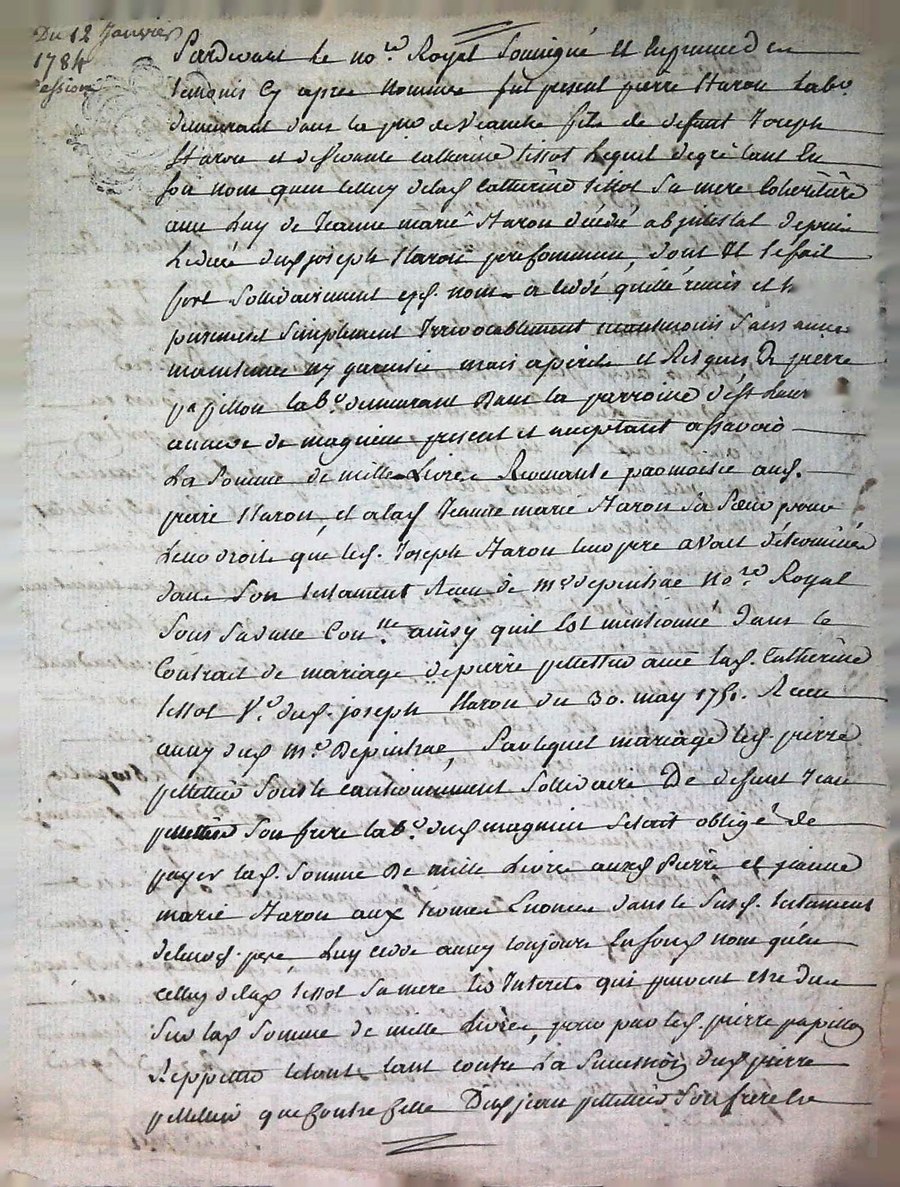 Du 12 Janvier
1784
Cession
Pardevant le no.re Royal soussigné et En presence des
temoins Cy apres nommés fut present pierre Haron labo.r
demeurant dans la p.sse de fils de defunt Joseph
Haron et de vivante catherine tissot Lequel de gré tant En
son nom quen celluy de lad. Catherine tissot sa mere Coheritiere
avec Luy de Jeanne marie Haron decedé ab intestat depuis
Le decé dud. joseph Haron prenommé, dont Il se fait
fort sollidairement esd. noms a cedé quitté remis et
purement simplement Irrevocablement neanmoins sans aucune
maintenue ny garantie mais a perils et Risques De pierre
papillon lab.r demeurant Dans la parroisse
annexe de magnieu present et acceptant assavoir
La somme de mille Livres Revenante par moitié aud.
pierre Haron, et a lad. Jeanne marie Haron sa sœur pour
Leurs droits que led. Joseph Haron leur pere avait determinés
dans son testament Receu de m.e depeintrae No.re Royal
sous sa datte Con.llé ainsy quil Est mentionné dans le
Contrait de mariage de pierre pelletier avec lad. Catherine
tissot V.e dud. joseph Haron du 30. may 1751. Receu
aussy dud. m.e Depeintrae, par lequel mariage led. pierre
pelletier sous le cautionnement sollidaire De defunt Jean
pelletier son frere lab.r dud. magnieu setait obligé de
payer lad. somme De mille Livres auxd. Pierre et jeanne
marie Haron aux termes Enoncés dans le susd. testament
de leurd. pere, Luy cede aussy toujours En sond. nom quen
celluy de lad. tissot sa mere les Interets qui peuvent etre dus
sur lad. somme de mille Livres, pour par led. pierre papillon
Reppetter letout tant contre La succession dud. pierre
pelletier que contre celle Dud. jean pelletier son frere